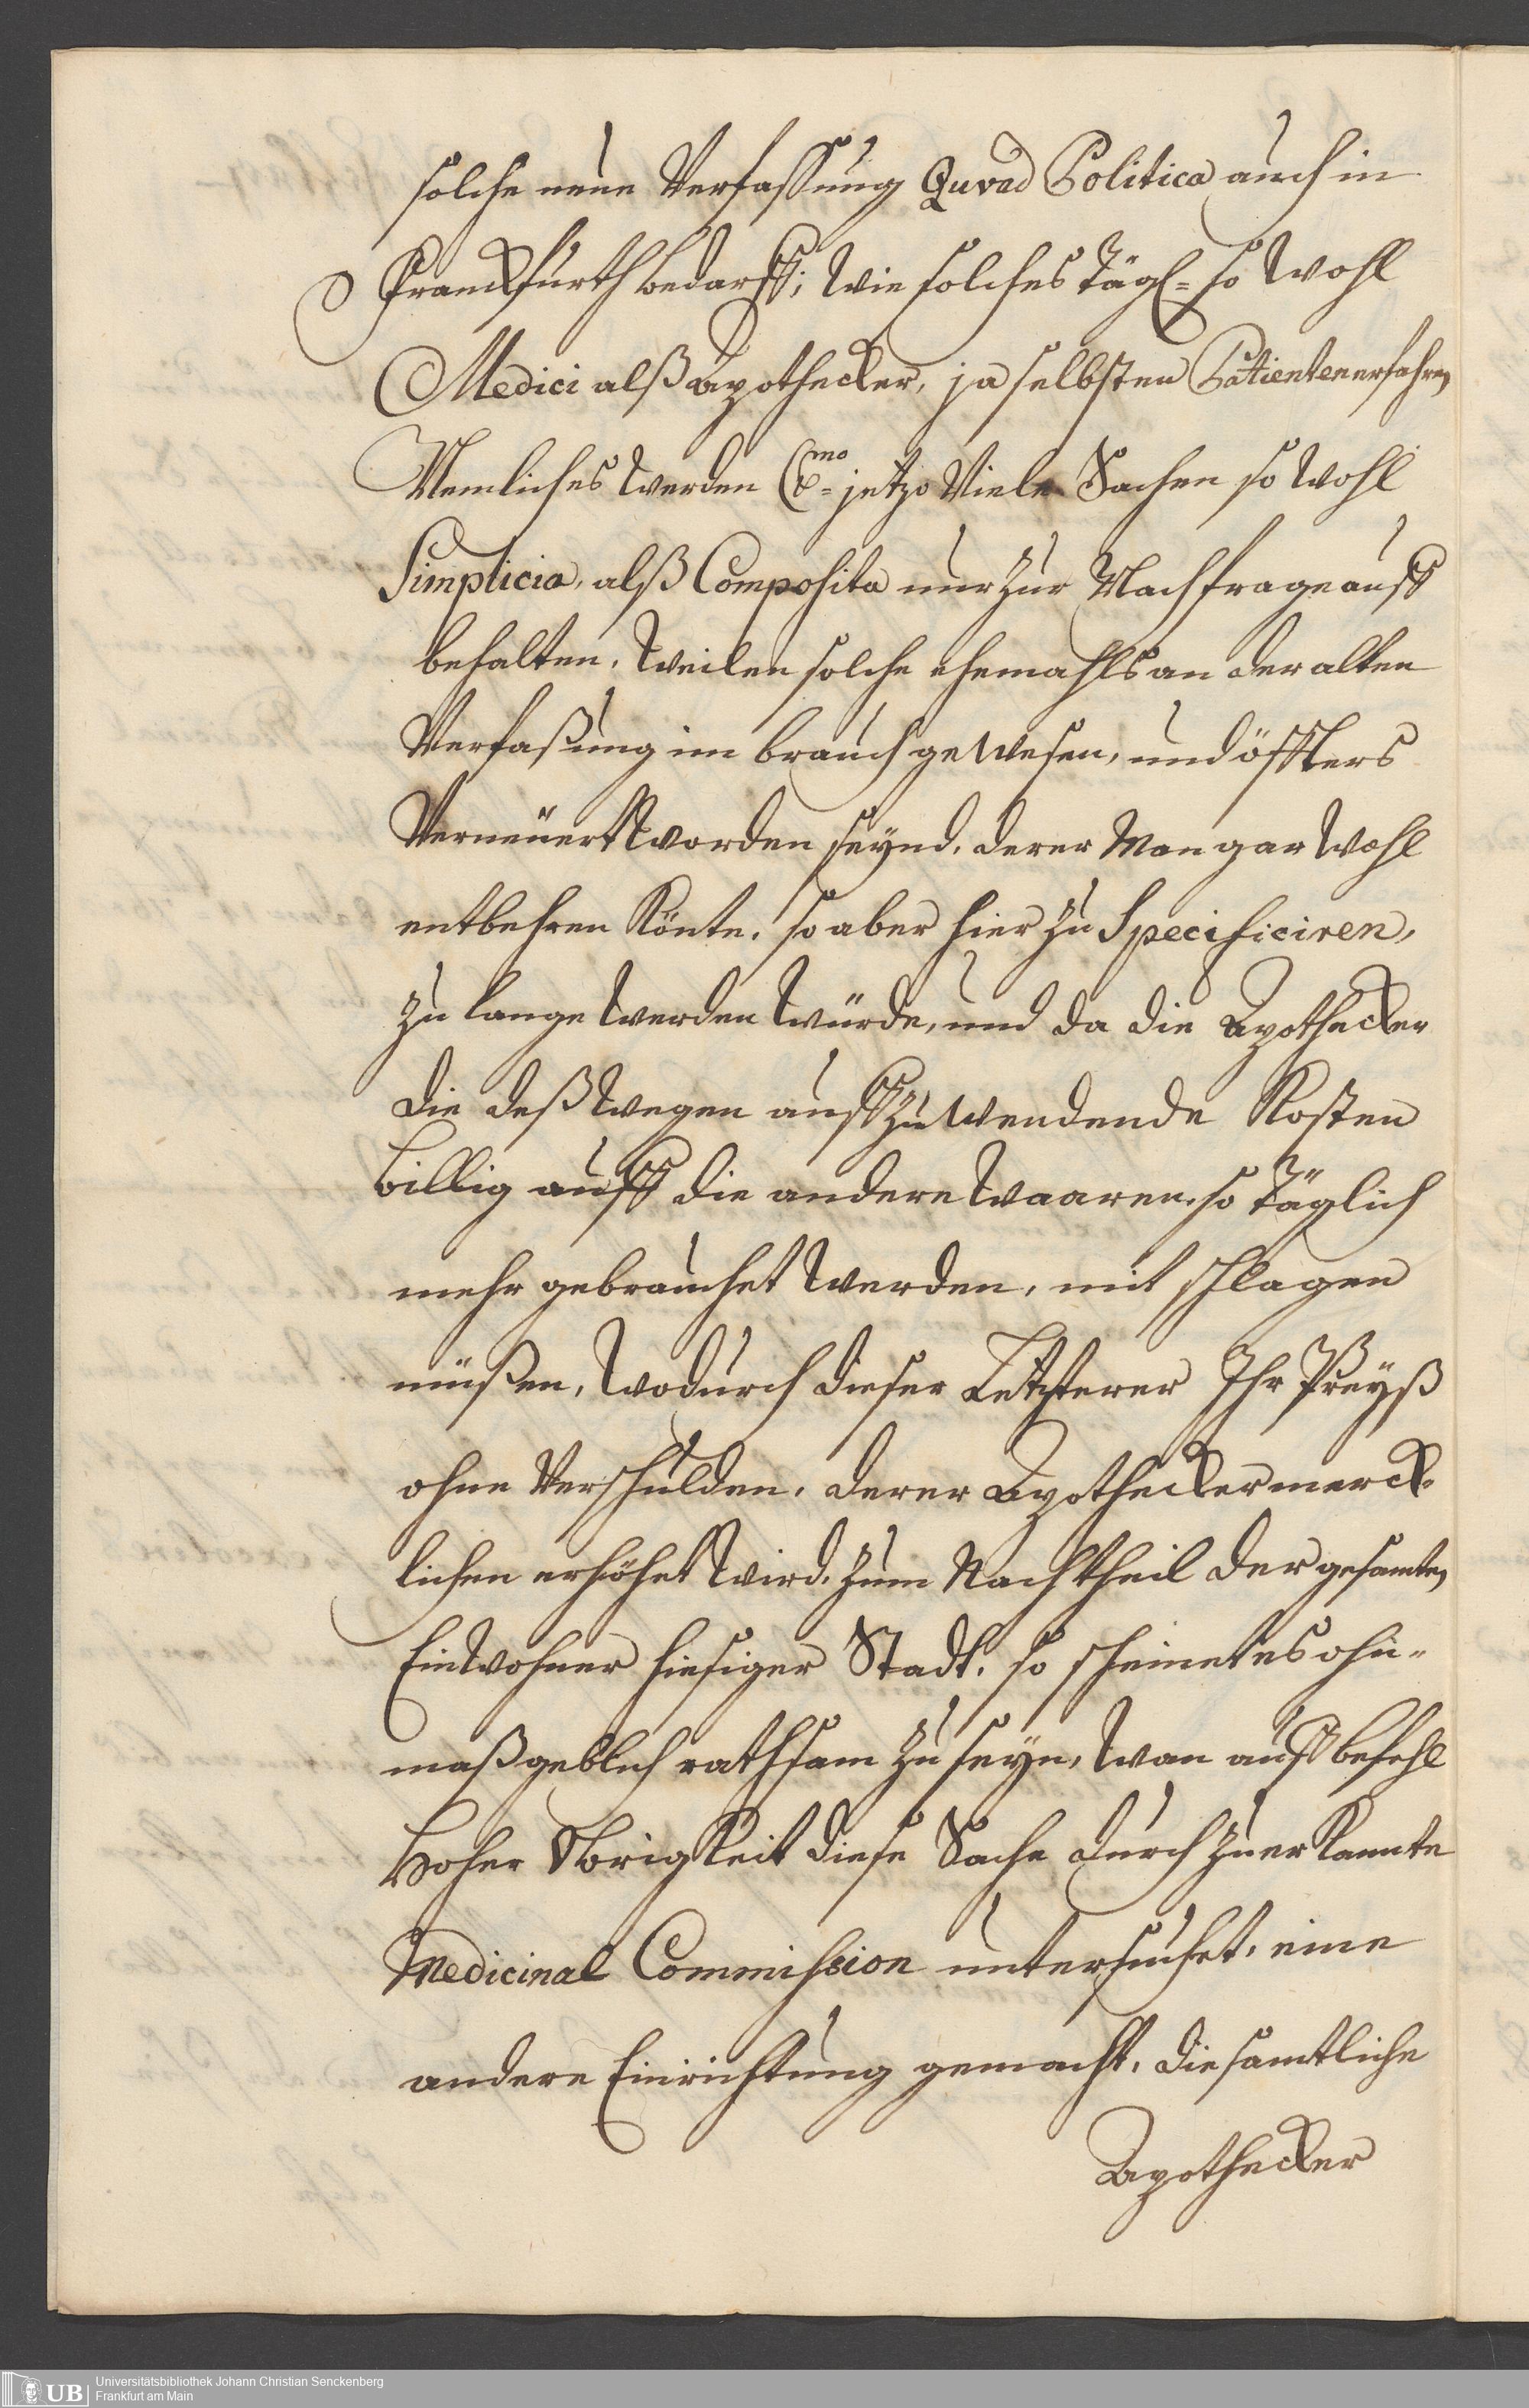 solche neue Verfassung Quoad Politica auch in
Franckfurth bedarff; wie solches tägl= so wohl
Medici alß Apothecker, ja selbsten Patienten erfahren
Nemliches werden jetzo Viele Sachen so wohl
Simplicia, alß Composita nur zur Nachfrage auff
behalten, weilen solche ehemahls an der alten
Verfaßung im brauch gewesen, und öffters
Verneuert worden seynd, derer Man gar wohl
entbehren könte, so aber hier zu Specificiren,
zu lange werden würde, und da die Apothecker
die deßwegen auffzuwendende Kosten
billig auff die andere Waaren, so täglich
mehr gebrauchet werden, mit schlagen
müßen, wodurch dieser Letzterer Ihr Preyß
ohne Verschulden, derer Apothecker merck-
lichen erhöhet wird, zum Nachtheil der gesamten
Einwohner hiesiger Stadt, so scheinet es ohn-
maßgeblich rathsam zu seyn, wan auff befehl
Hoher Obrigkeit diese Sache durch zuerkannte
Medicinal Commission untersuchet, eine
andere Einrichtung gemacht, die samtliche
Apothecker
UB Universitätsbibliothek Johann Christian Senckenberg
Frankfurt am Main